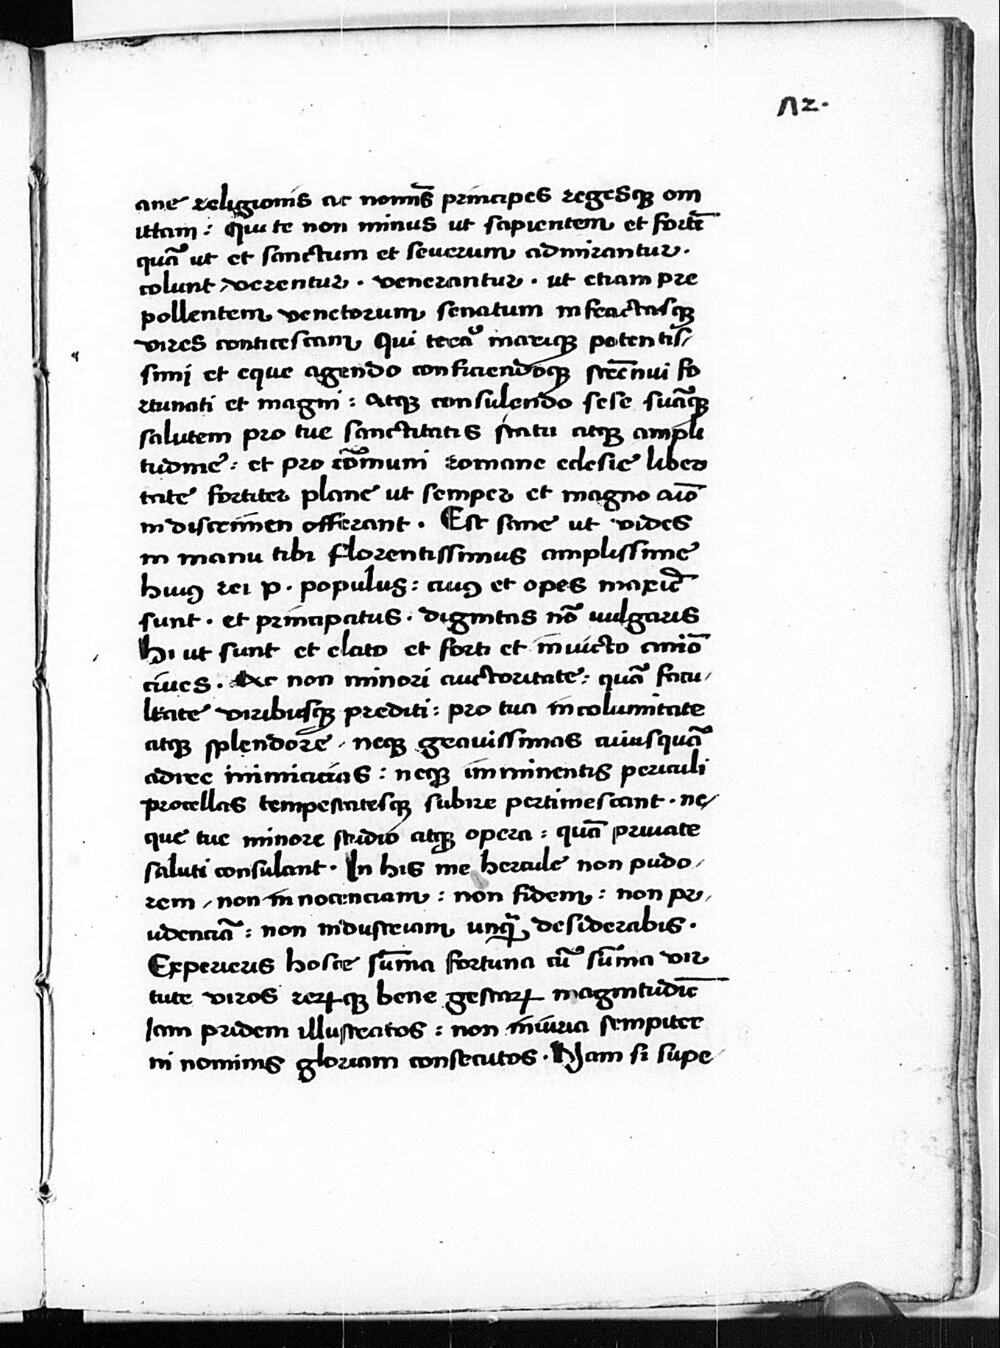 Λ2.
ane religionis ac nomīs principes regesqꝫ om
ittam : Qui te non minus ut sapientem et fortē
quā ut et sanctum et seuerum admirantur .
colunt / verentur . venerantur . ut etiam pre
pollentem venetorum senatum infractasqꝫ
vires conticescam Qui terā mariqꝫ potentis/
simi et eque agendo conficiendoqꝫ strēnui fo
rtunati et magni : atqꝫ consulendo sese suāqꝫ
salutem pro tue sanctitatis statu atqꝫ ampli
tudine : et pro cōmuni romane eclesie liber
tate fortiter plane ut semper et magno aīo
in discrimen offerant . Est sane ut vides
in manu tibi florentissimus amplissime
huiꝯ rei p . populus : cuiꝯ et opes maxīe
sunt . et principatus . dignitas nō uulgaris
Hi ut sunt et elato et forti et inuicto animō
ciues . Ac non minori auctoritate : quā facu/
ltate viribusqꝫ prediti : pro tua incolumitate
atqꝫ splendore / neqꝫ grauissimas cuiusquā
adire inimicicias : neqꝫ imminentis periculi
procellas tempestatesqꝫ subire pertimescant . ne/
que tue minore studio atqꝫ opera : quā priuate
saluti consulant . In his me hercule non pudo/
rem / non innocenciam : non fidem : non pr/
udenciā : non industriam unqꝫ̄ desiderabis .
Experieris hosce sūma fortuna cū sūma vir
tute viros rerꝝqꝫ bene gestarꝝ magnitudīe
Iam pridem illustratos : non iniuria sempiter
ni nominis gloriam consecutos . Nam si supe/